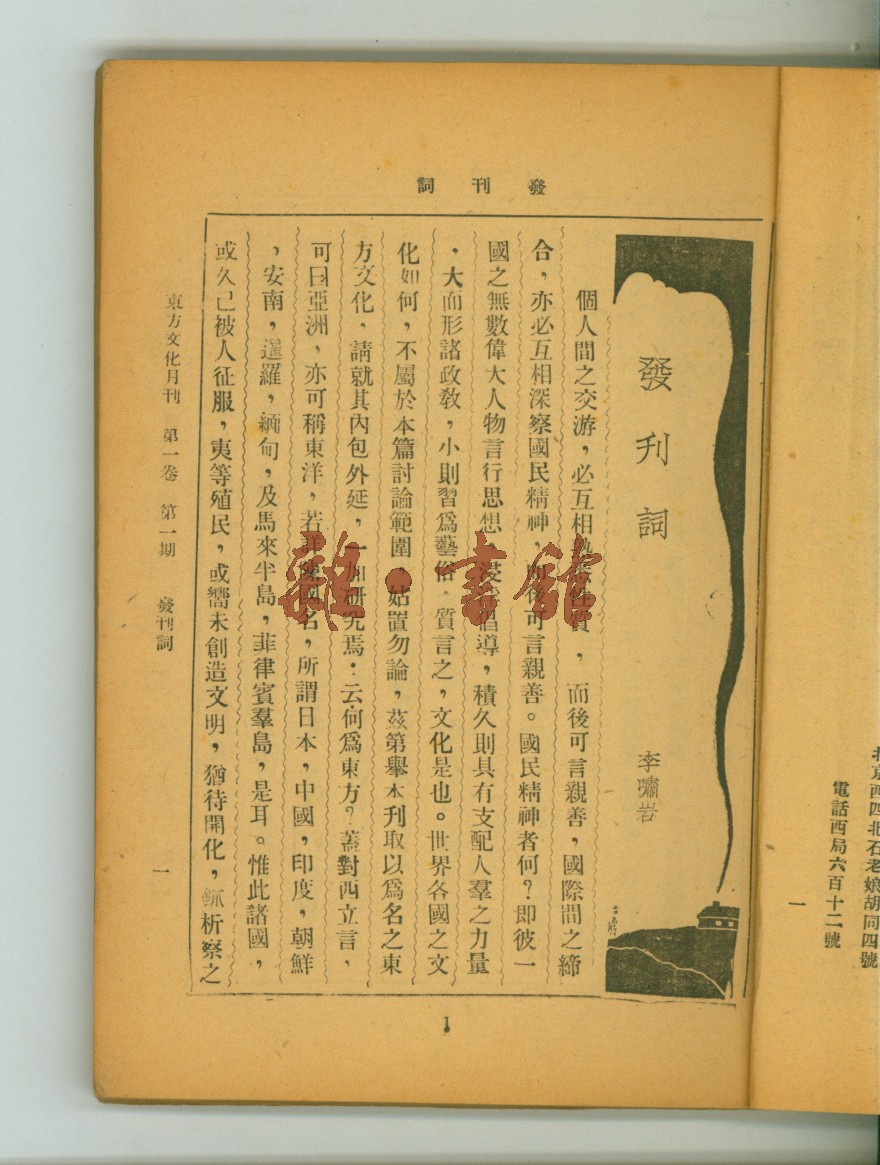 發刊詞
發刊詞
李嘯岩
個人間之交游，必互相性質，而後可言親善，國際間之締
合，亦必互相深察國民精神，而後可言親善。國民精神者何？即彼一
國之無數偉大人物言行思想，浸倡導，積久則具有支配人羣之力量
，大而形諸政敎，小則習爲藝俗．質言之，文化是也。世界各國之文
化如何，不屬於本篇討論範圍，姑置勿論，茲第舉本刊取以爲名之東
方文化，請就其內包外延，一加研究焉：云何爲東方？蓋對西立言，
可曰亞洲，亦可稱東洋，若詳陳國名，所謂日本，中國，印度，朝鮮
，安南，暹羅，緬甸，及馬來半島，菲律賓羣島，是耳。惟此諸國，
或久已被人征服，夷等殖民，或嚮未創造文明，猶待開化，析察之
東方文化月刊 第一卷 第一期 發刊詞 一
1
雜·書館
北京西四北石老娘胡同四號
電話西局六百十二號
一